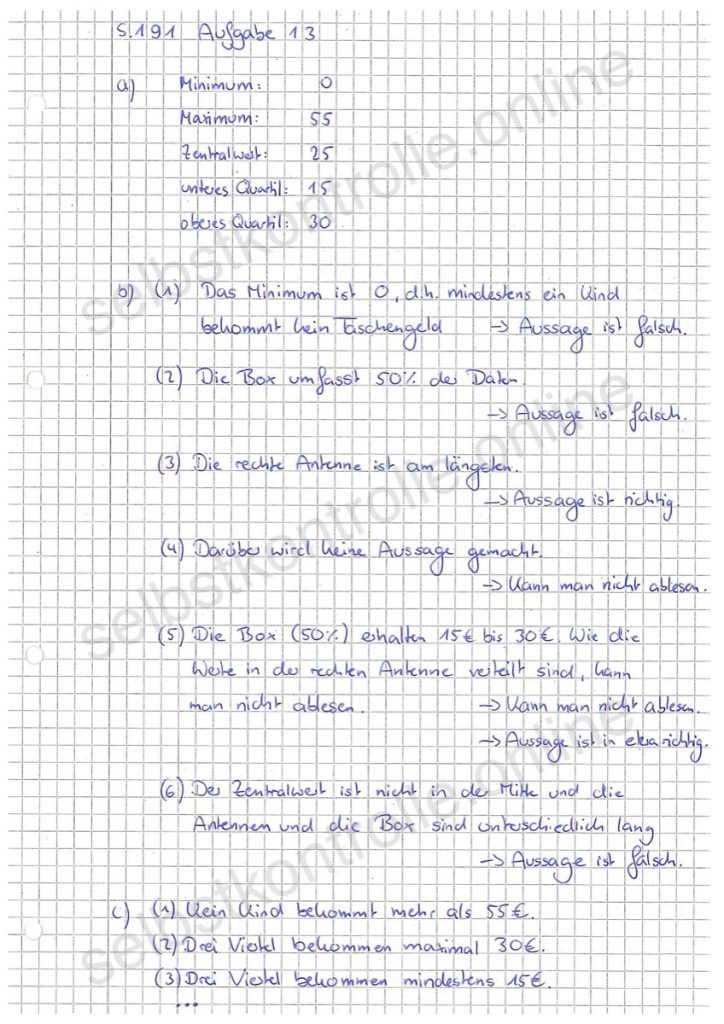 S.191 Aufgabe 13
a) Minimum: 0
Maximum: 55
Zentralwert: 25
unteres Quartil: 15
oberes Quartil: 30
b) (1) Das Minimum ist 0, d.h. mindestens ein Kind
bekommt kein Taschengeld → Aussage ist falsch.
(2) Die Box umfasst 50% der Daten.
→ Aussage ist falsch.
(3) Die rechte Antenne ist am längsten.
→ Aussage ist richtig.
(4) Darüber wird keine Aussage gemacht.
→ Kann man nicht ablesen.
(5) Die Box (50%) erhalten 15€ bis 30€. Wie die
Werte in der rechten Antenne verteilt sind, kann
man nicht ablesen. → Kann man nicht ablesen.
→ Aussage ist in etwa richtig.
(6) Der Zentralwert ist nicht in der Mitte und die
Antennen und die Box sind unterschiedlich lang
→ Aussage ist falsch.
c) (1) Kein Kind bekommt mehr als 55€.
(2) Drei Viertel bekommen maximal 30€.
(3) Drei Viertel bekommen mindestens 15€.
...
selbstkontrolle.online
selbstkontrolle.online
selbstkontrolle.online